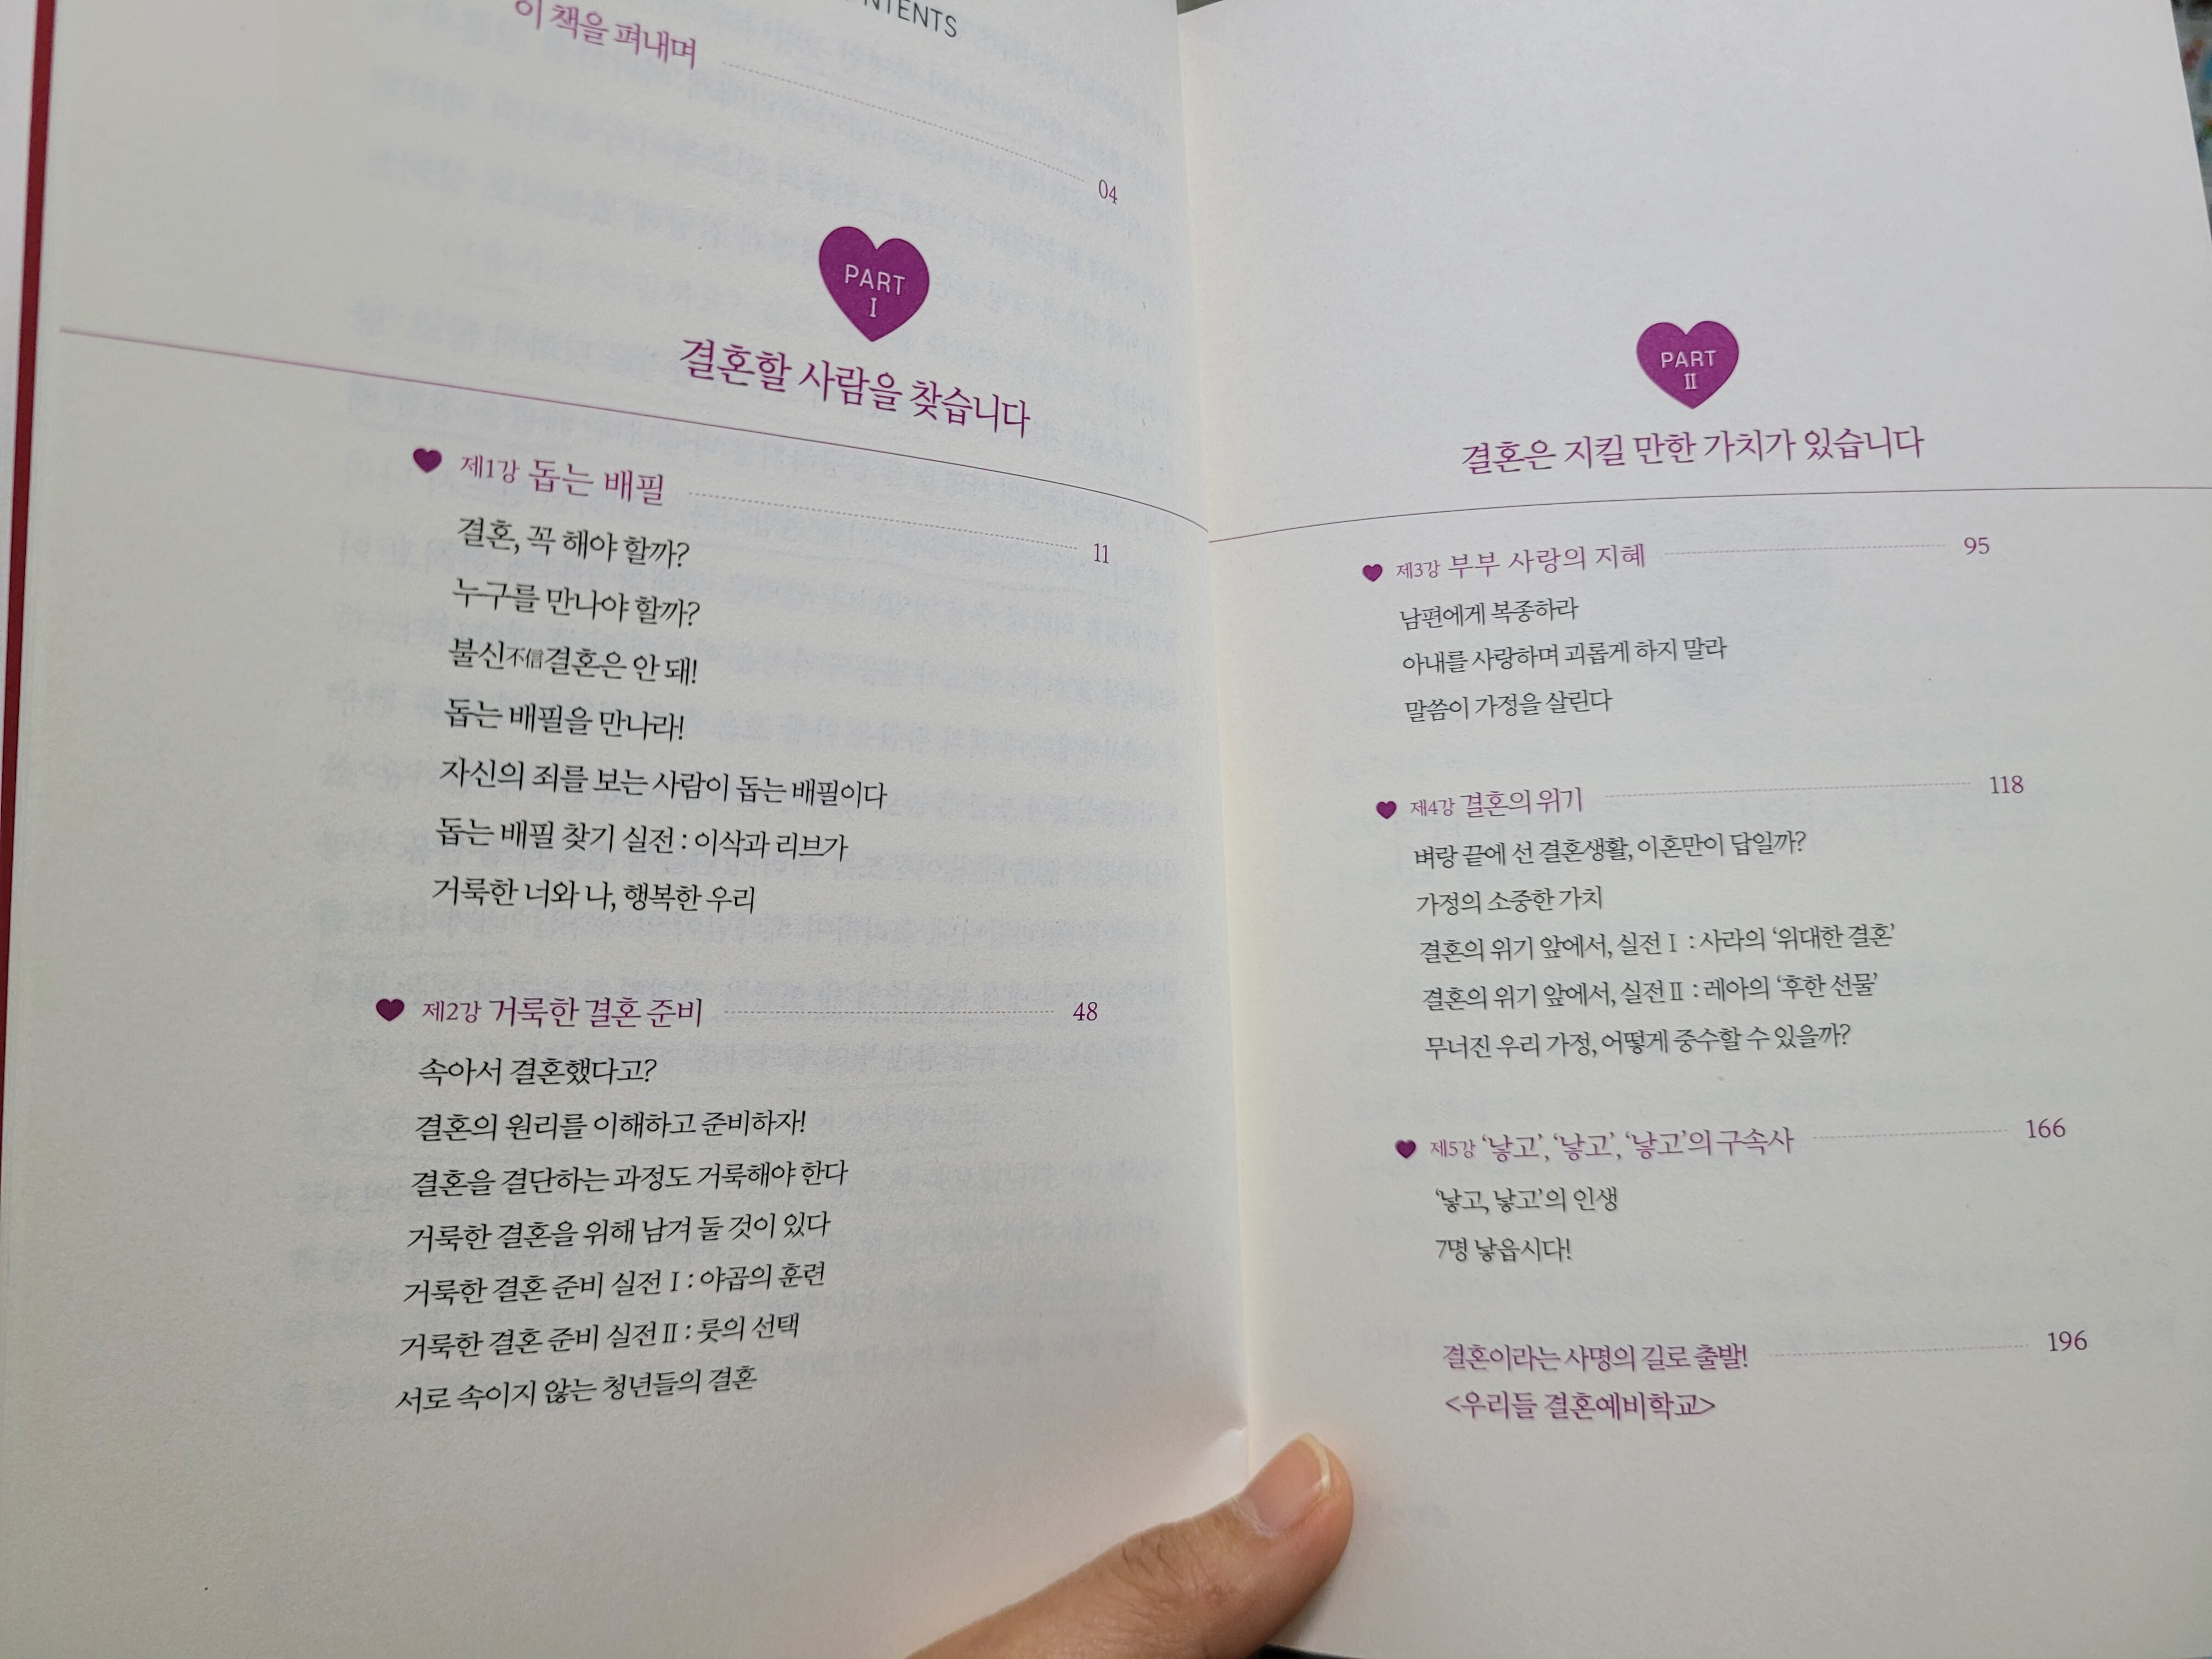 CONTENTS
이 책을 펴내며 04
PART
I
결혼할 사람을 찾습니다
제1강 돕는 배필 11
결혼, 꼭 해야 할까?
누구를 만나야 할까?
불신不信결혼은 안 돼!
돕는 배필을 만나라!
자신의 죄를 보는 사람이 돕는 배필이다
돕는 배필 찾기 실전 : 이삭과 리브가
거룩한 너와 나, 행복한 우리
제2강 거룩한 결혼 준비 48
속아서 결혼했다고?
결혼의 원리를 이해하고 준비하자!
결혼을 결단하는 과정도 거룩해야 한다
거룩한 결혼을 위해 남겨 둘 것이 있다
거룩한 결혼 준비 실전 Ⅰ : 야곱의 훈련
거룩한 결혼 준비 실전 Ⅱ : 룻의 선택
서로 속이지 않는 청년들의 결혼
PART
II
결혼은 지킬 만한 가치가 있습니다
제3강 부부 사랑의 지혜 95
남편에게 복종하라
아내를 사랑하며 괴롭게 하지 말라
말씀이 가정을 살린다
제4강 결혼의 위기 118
벼랑 끝에 선 결혼생활, 이혼만이 답일까?
가정의 소중한 가치
결혼의 위기 앞에서, 실전 Ⅰ : 사라의 ‘위대한 결혼’
결혼의 위기 앞에서, 실전 Ⅱ : 레아의 ‘후한 선물’
무너진 우리 가정, 어떻게 중수할 수 있을까?
제5강 ‘낳고’, ‘낳고’, ‘낳고’의 구속사 166
‘낳고, 낳고’의 인생
7명 낳읍시다!
결혼이라는 사명의 길로 출발! 196
<우리들 결혼예비학교>